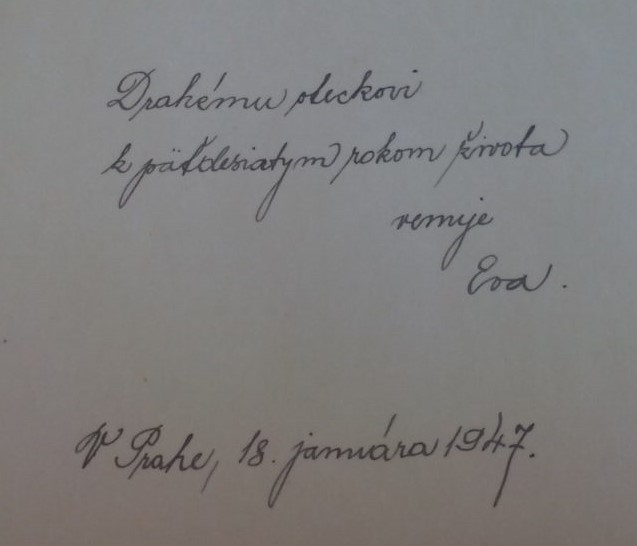 Drahému oteckovi
k päťdesiatym rokom života
venuje
Eva.
V Prahe, 18. januára 1947.